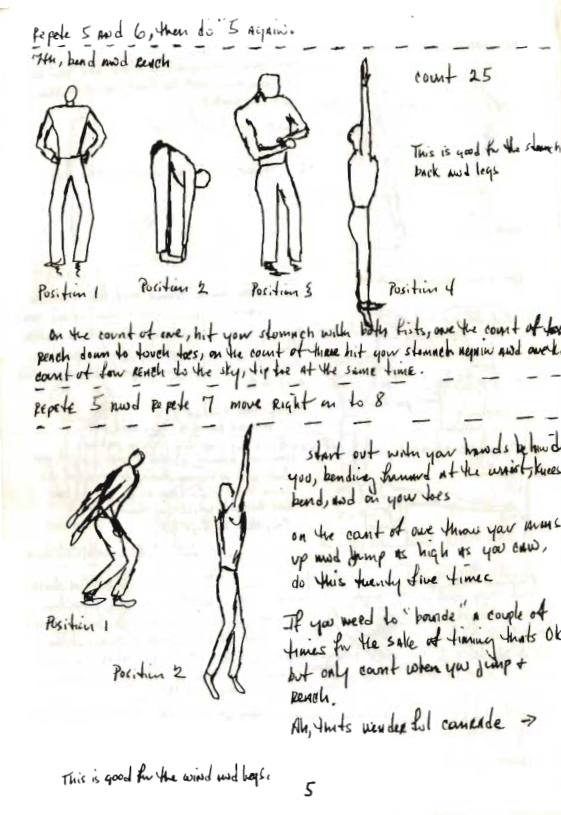 Repete 5 and 6, then do 5 again.
7th, bend and reach
count 25
This is good for the stomach
back and legs
Position 1
Position 2
Position 3
Position 4
On the count of one, hit your stomach with both fists, one the count of two
reach down to touch toes, on the count of three hit your stomach again and
count of four reach to the sky, tip toe at the same time.
Repete 5 and Repete 7 move right on to 8
start out with your hands behind
you, bending forward at the waist, knees
bend, and on your toes
on the count of one throw your arms
up and jump as high as you can,
do this twenty five times
If you need to "bounce" a couple of
times for the sake of timing thats OK
but only count when you jump +
reach.
Ah, thats wonderful comrade →
Position 1
Position 2
This is good for the wind and legs.
5